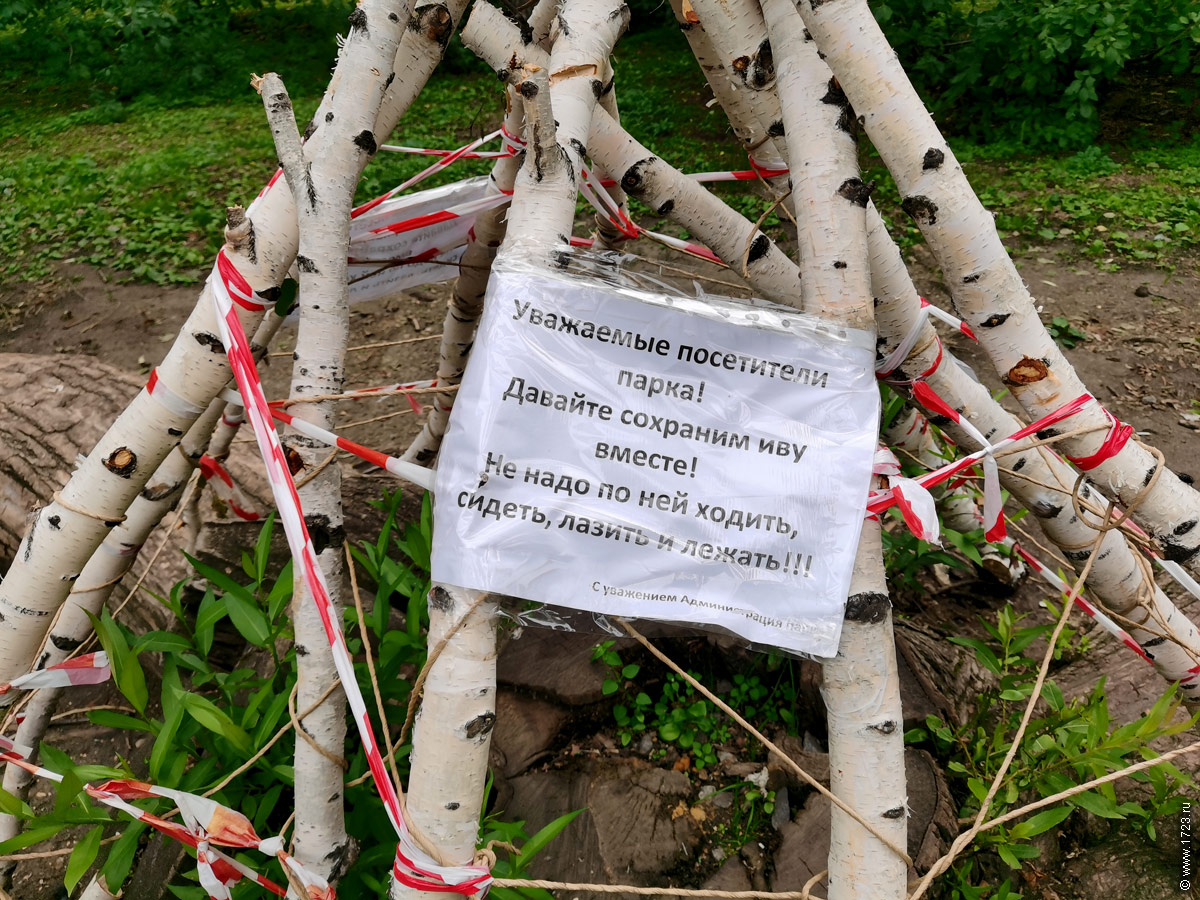 Уважаемые посетители
парка!
Давайте сохраним иву
вместе!
Не надо по ней ходить,
сидеть, лазить и лежать!!!
С уважением Администрация
© www.1723.ru